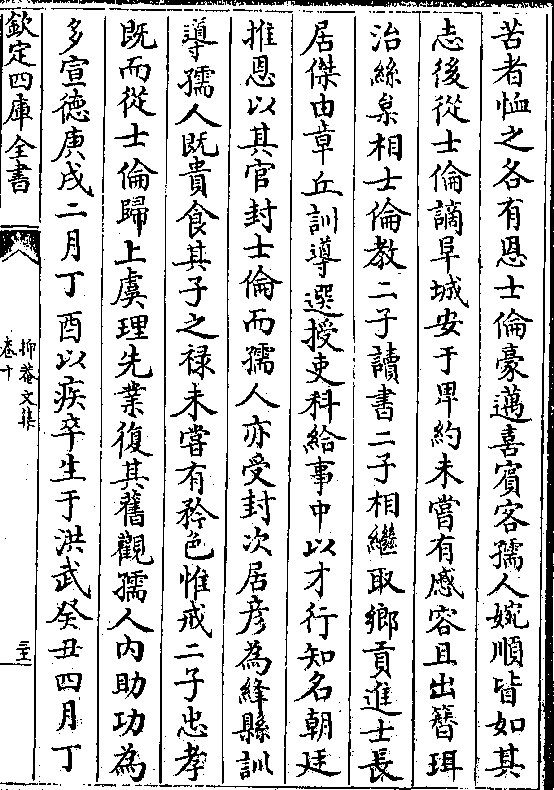 苦者恤之各有恩士倫豪邁喜賓客孺人婉順皆如其
志後從士倫謫阜城安于卑約未嘗有慼容且出簪珥
治絲枲相士倫教二子讀書二子相繼取鄉貢進士長
居傑由章丘訓導選授吏科給事中以才行知名朝廷
推恩以其官封士倫而孺人亦受封次居彦為絳縣訓
導孺人既貴食其子之禄未嘗有矜色惟戒二子忠孝
既而從士倫歸上虞理先業復其舊觀孺人内助功為
多宣德庚戌二月丁酉以疾卒生于洪武癸丑四月丁
欽定四庫全書
抑菴文集
卷十